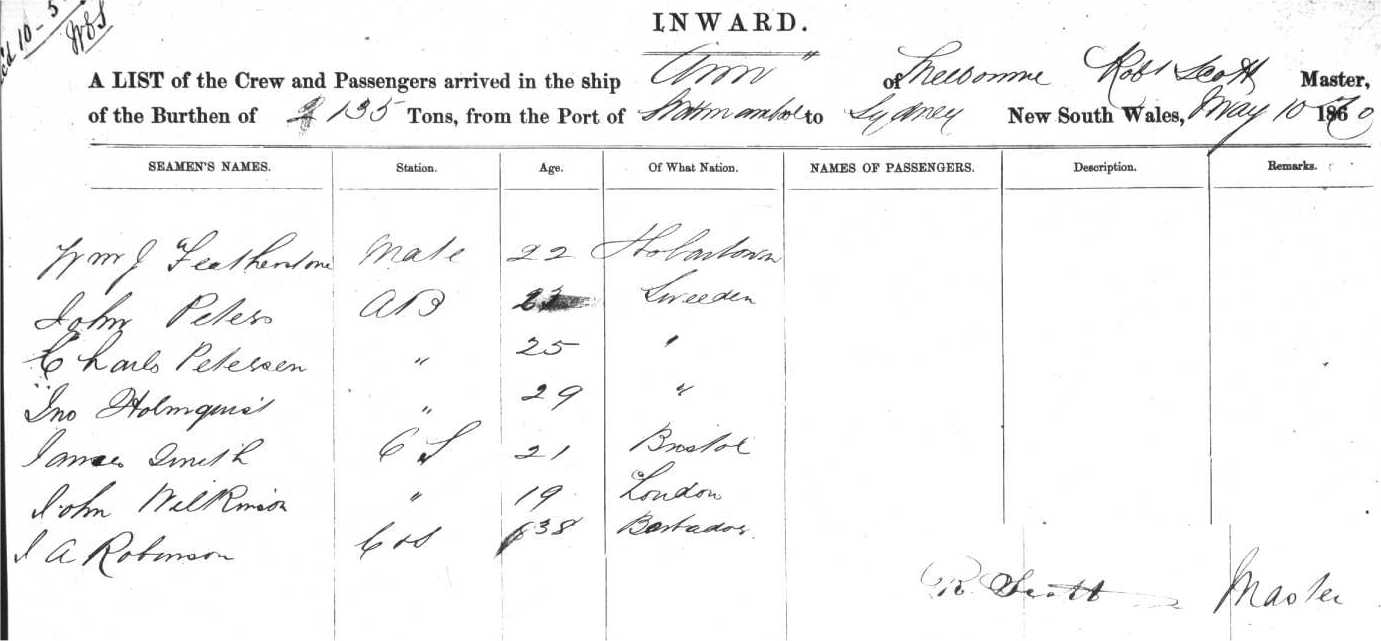 INWARD.
A LIST of the Crew and Passengers arrived in the ship Ann " of Melbourne Robt Scott Master,
of the Burthen of 135 Tons, from the Port of to Sydney New South Wales, May 10 1870
SEAMEN'S NAMES. Station. Age. Of What Nation. NAMES OF PASSENGERS. Description. Remarks.
Wm J Featherstone Mate 22 Hobartown
John Peters AB 23 Sweeden
Charls Petersen " 25 "
Jno Holmquist " 29 "
James Smith O S 21 Bristol
John Wilkinson " 19 London
J A Robinson C & S 38 Barbados.
R Scott Master